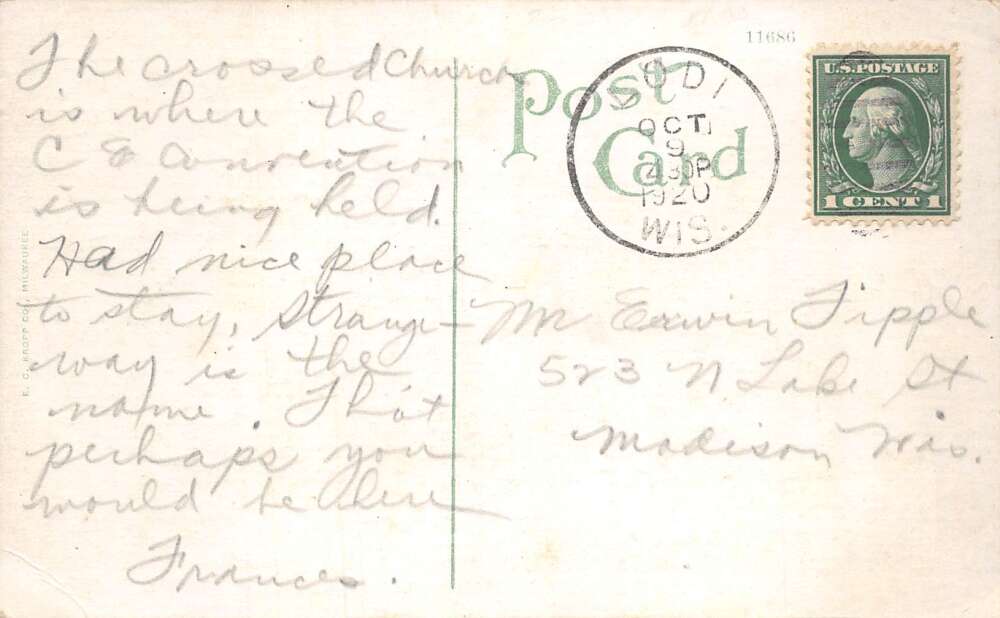 The crossed Church
is where the
C E Convention
is being held.
Had nice place
to stay, Strange-
way is the
name. Thot
perhaps you
would be here
Frances.
E. C. KROPP CO. MILWAUKEE
11686
Post
Card
LODI
OCT
9
430P
1920
WIS.
U.S. POSTAGE
1 CENT 1
Mr Erwin Tipple
523 N Lake St
Madison Wis.